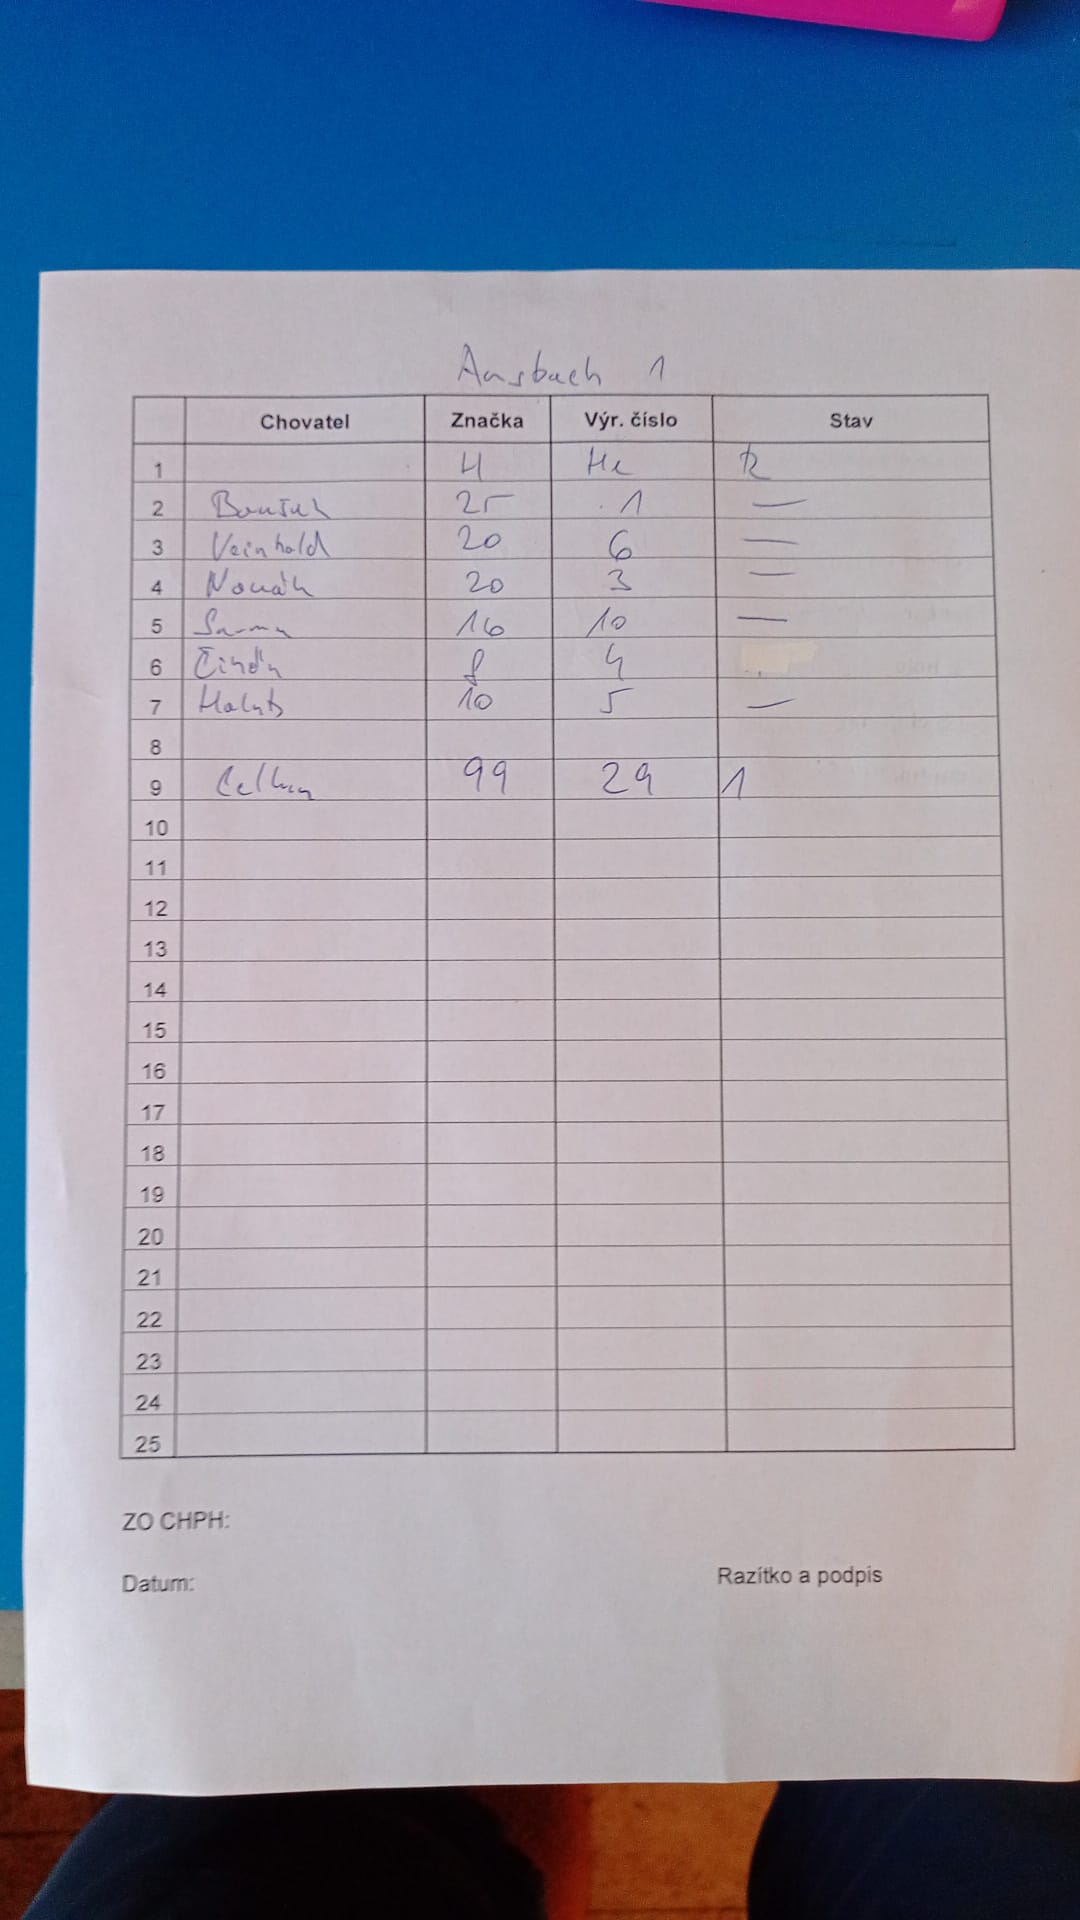 Ansbach 1
Chovatel Značka Výr. číslo Stav
1 H
2 25 1 —
3 Veinhold 20 6 —
4 Novák 20 3 —
5 16 10 —
6 8 4
7 10 5 —
8
9 Celkem 99 29 1
10
11
12
13
14
15
16
17
18
19
20
21
22
23
24
25
ZO CHPH:
Datum:
Razítko a podpis